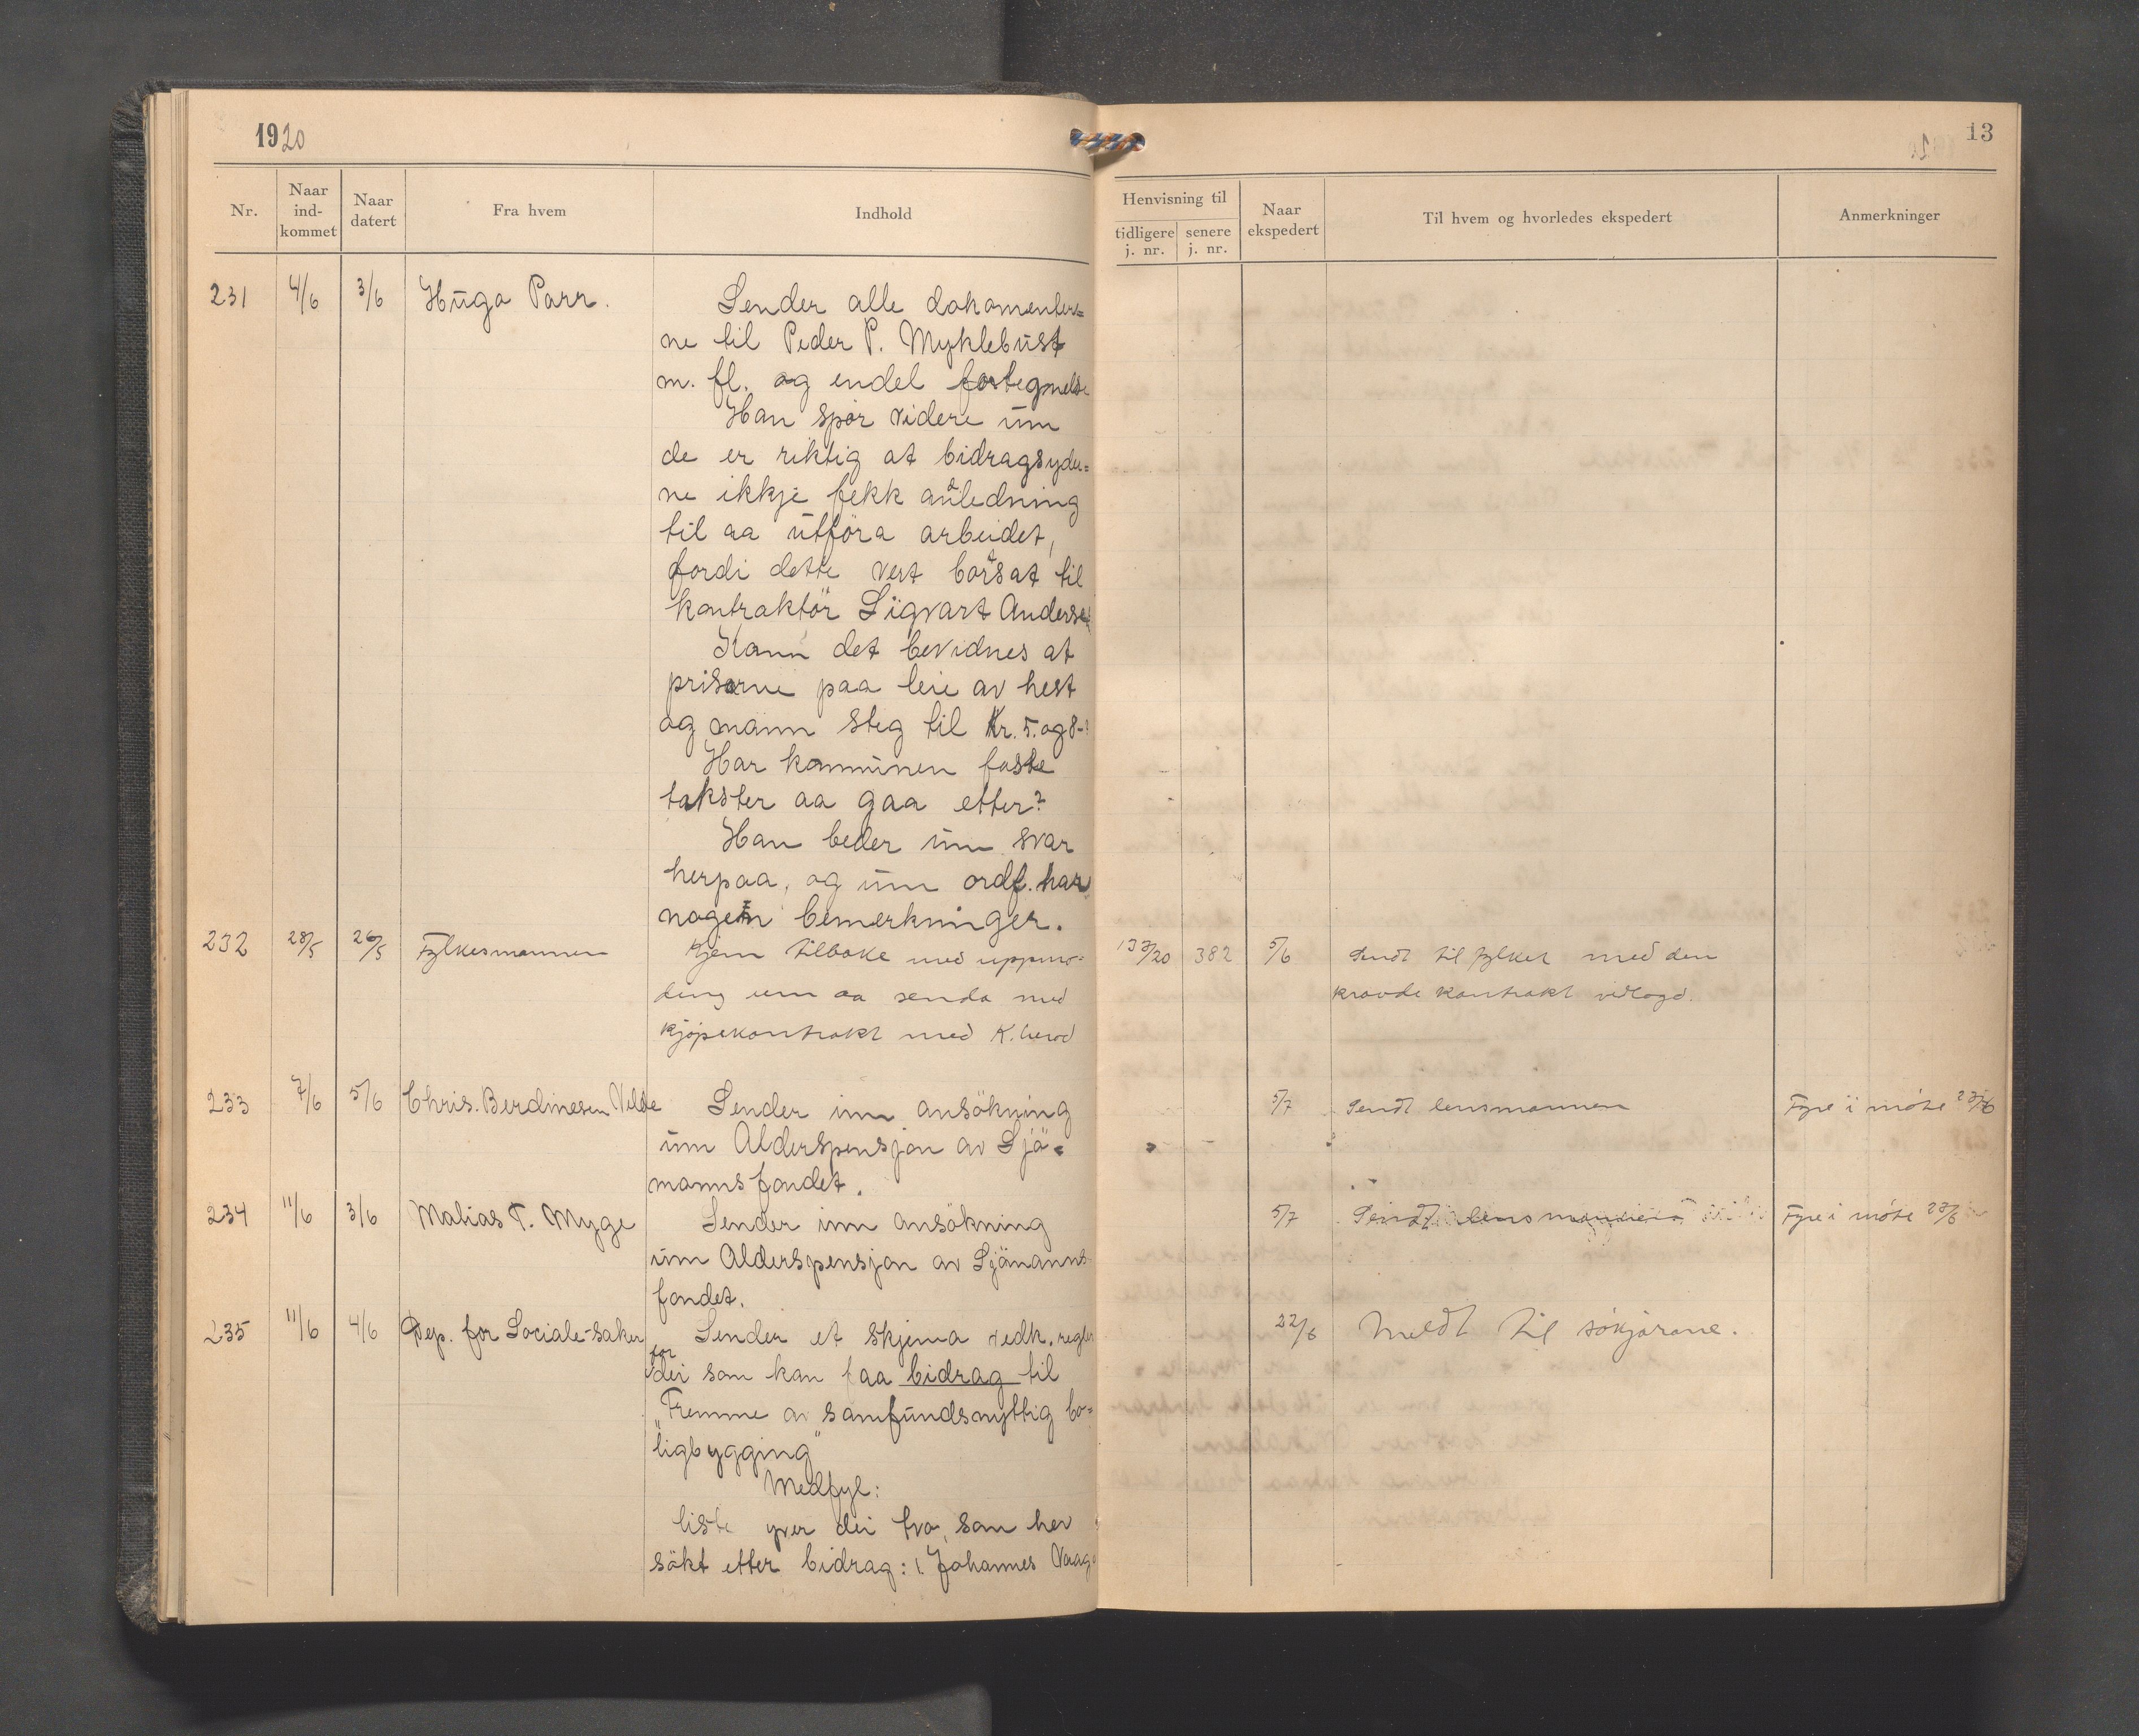 1920
13
Nr.
Naar ind-kommet
Naar datert
Fra hvem
Indhold
Henvisning til
tidligere j. nr.
senere j. nr.
Naar ekspedert
Til hvem og hvorledes ekspedert
Anmerkninger
231 4/6 3/6 Hugo Parr. Sender alle dokomenter=
ne til Peder P. Myklebust
m. fl. og endel
Han spör videre um
de er riktig at bidragsyder=
ne ikkje fekk anledning
til aa utföra arbeidet,
fordi dette vert borsat til
kontraktör Sigvart Andersen
Kann det bevidnes at
prisarne paa leie av hest
og mann steg til Kr. 5. og 8-?
Har kommunen faste
takster aa gaa etter?
Han beder um svar
herpaa, og um ordf. har
nogen bemerkninger.
232 28/5 26/5 Fylkesmannen Kjem tilbake med uppmo-
ding um aa senda med
kjøpekontrakt med K.
133/20 382 5/6 Sendt til fylket med den
kravde kontrakt vedlagd.
233 7/6 5/6 Chris. Berdinesen Velde Sender inn ansökning
um Alderspensjon av Sjö=
mannsfondet.
5/7 Sendt lensmannen Fyre i møte 23/6
234 11/6 3/6 Malias T. Myge Sender inn ansökning
um Alderspensjon av Sjömanns
fondet.
5/7 Sendt lensmannen Fyre i møte 23/6
235 11/6 4/6 Dep. for Sociale-saker Sender et skjema vedk. regler
for
dei som kan faa bidrag til
"Fremme av samfundsnyttig bo=
ligbygging"
Medfyl:
liste yver dei tvo, som hev
sökt etter bidrag: 1. Johannes Vaage
22/6 Meldt til søkjarane.